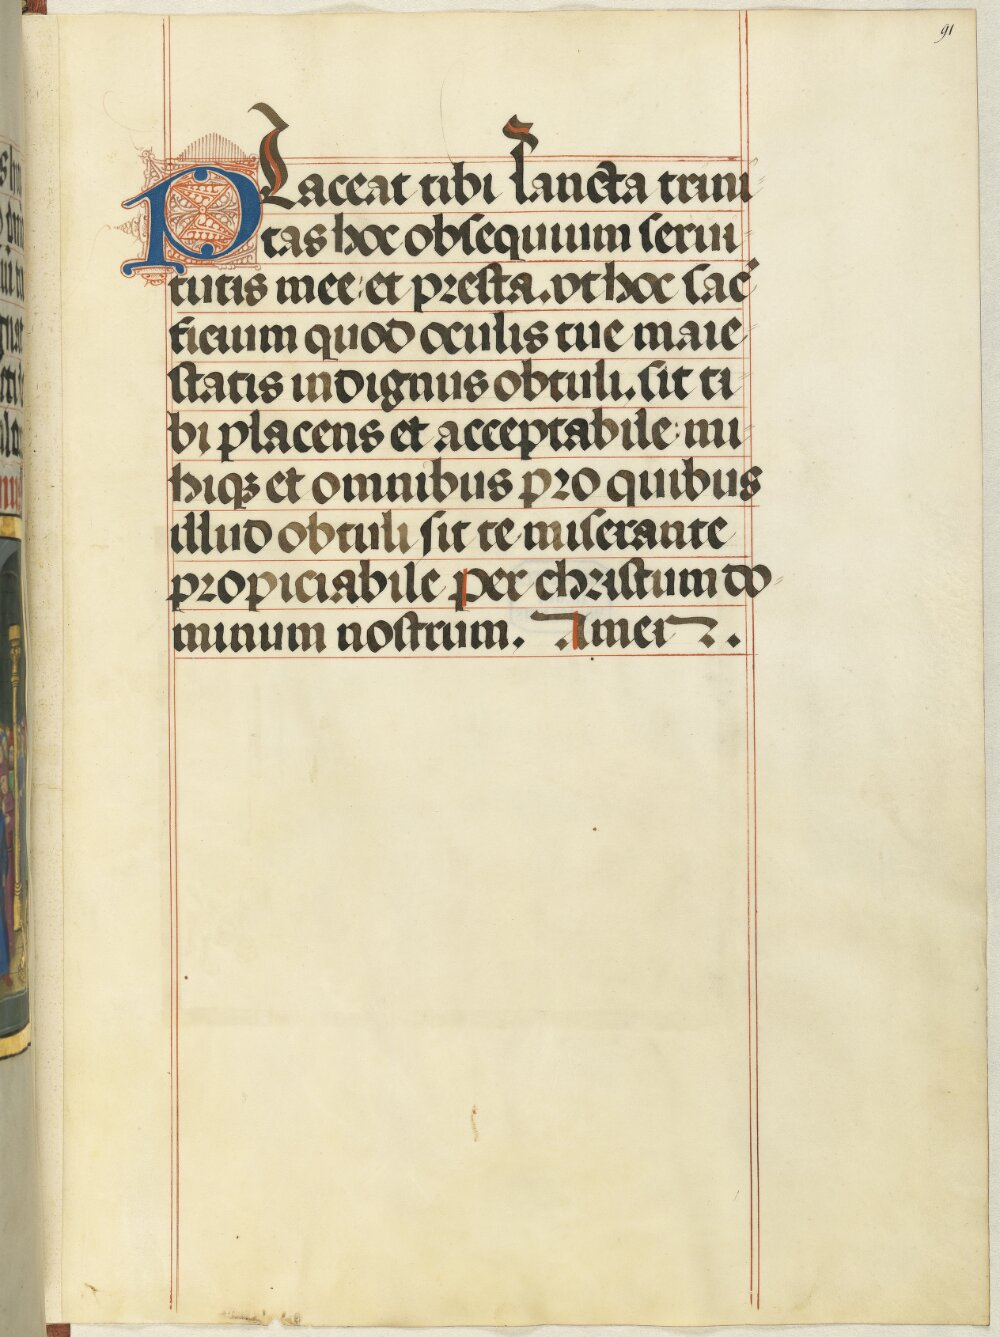 91
PLaceat tibi sancta trini
tas hoc obsequium serui
tutis mee: et presta. vt hoc sac
ficium quod oculis tue maie
statis indignus obtuli. sit ti
bi placens et acceptabile: mi
hiqꝫ et omnibus pro quibus
illud obtuli sit te miserante
propiciabile per christum do
minum nostrum. Amen.